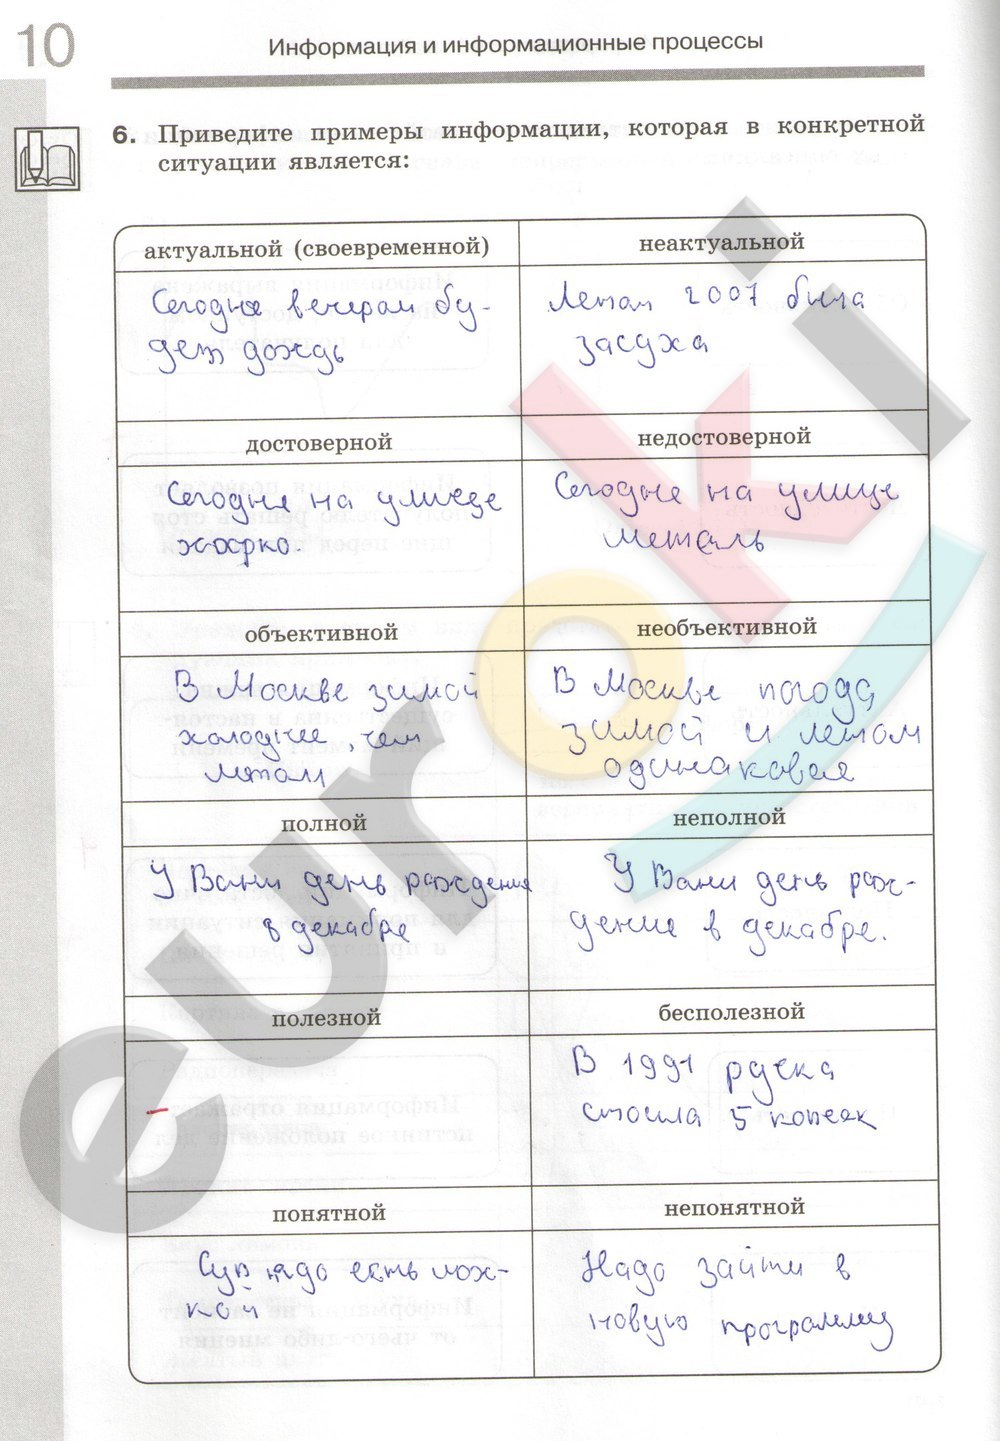 10
Информация и информационные процессы
6. Приведите примеры информации, которая в конкретной
ситуации является:
актуальной (своевременной)
Сегодня вечером бу-
дет дождь
неактуальной
Летом 2007 была
засуха
достоверной
Сегодня на улице
жарко.
недостоверной
Сегодня на улице
метель
объективной
В Москве зимой
холоднее, чем
летом
необъективной
В Москве погода
зимой и летом
одинаковая
полной
У Вани день рождения
в декабре
неполной
У Вани день рож-
дение в декабре.
полезной
бесполезной
В 1991 ручка
стоила 5 копеек
понятной
Суп надо есть лож-
кой
непонятной
Надо зайти в
новую программу
euroki